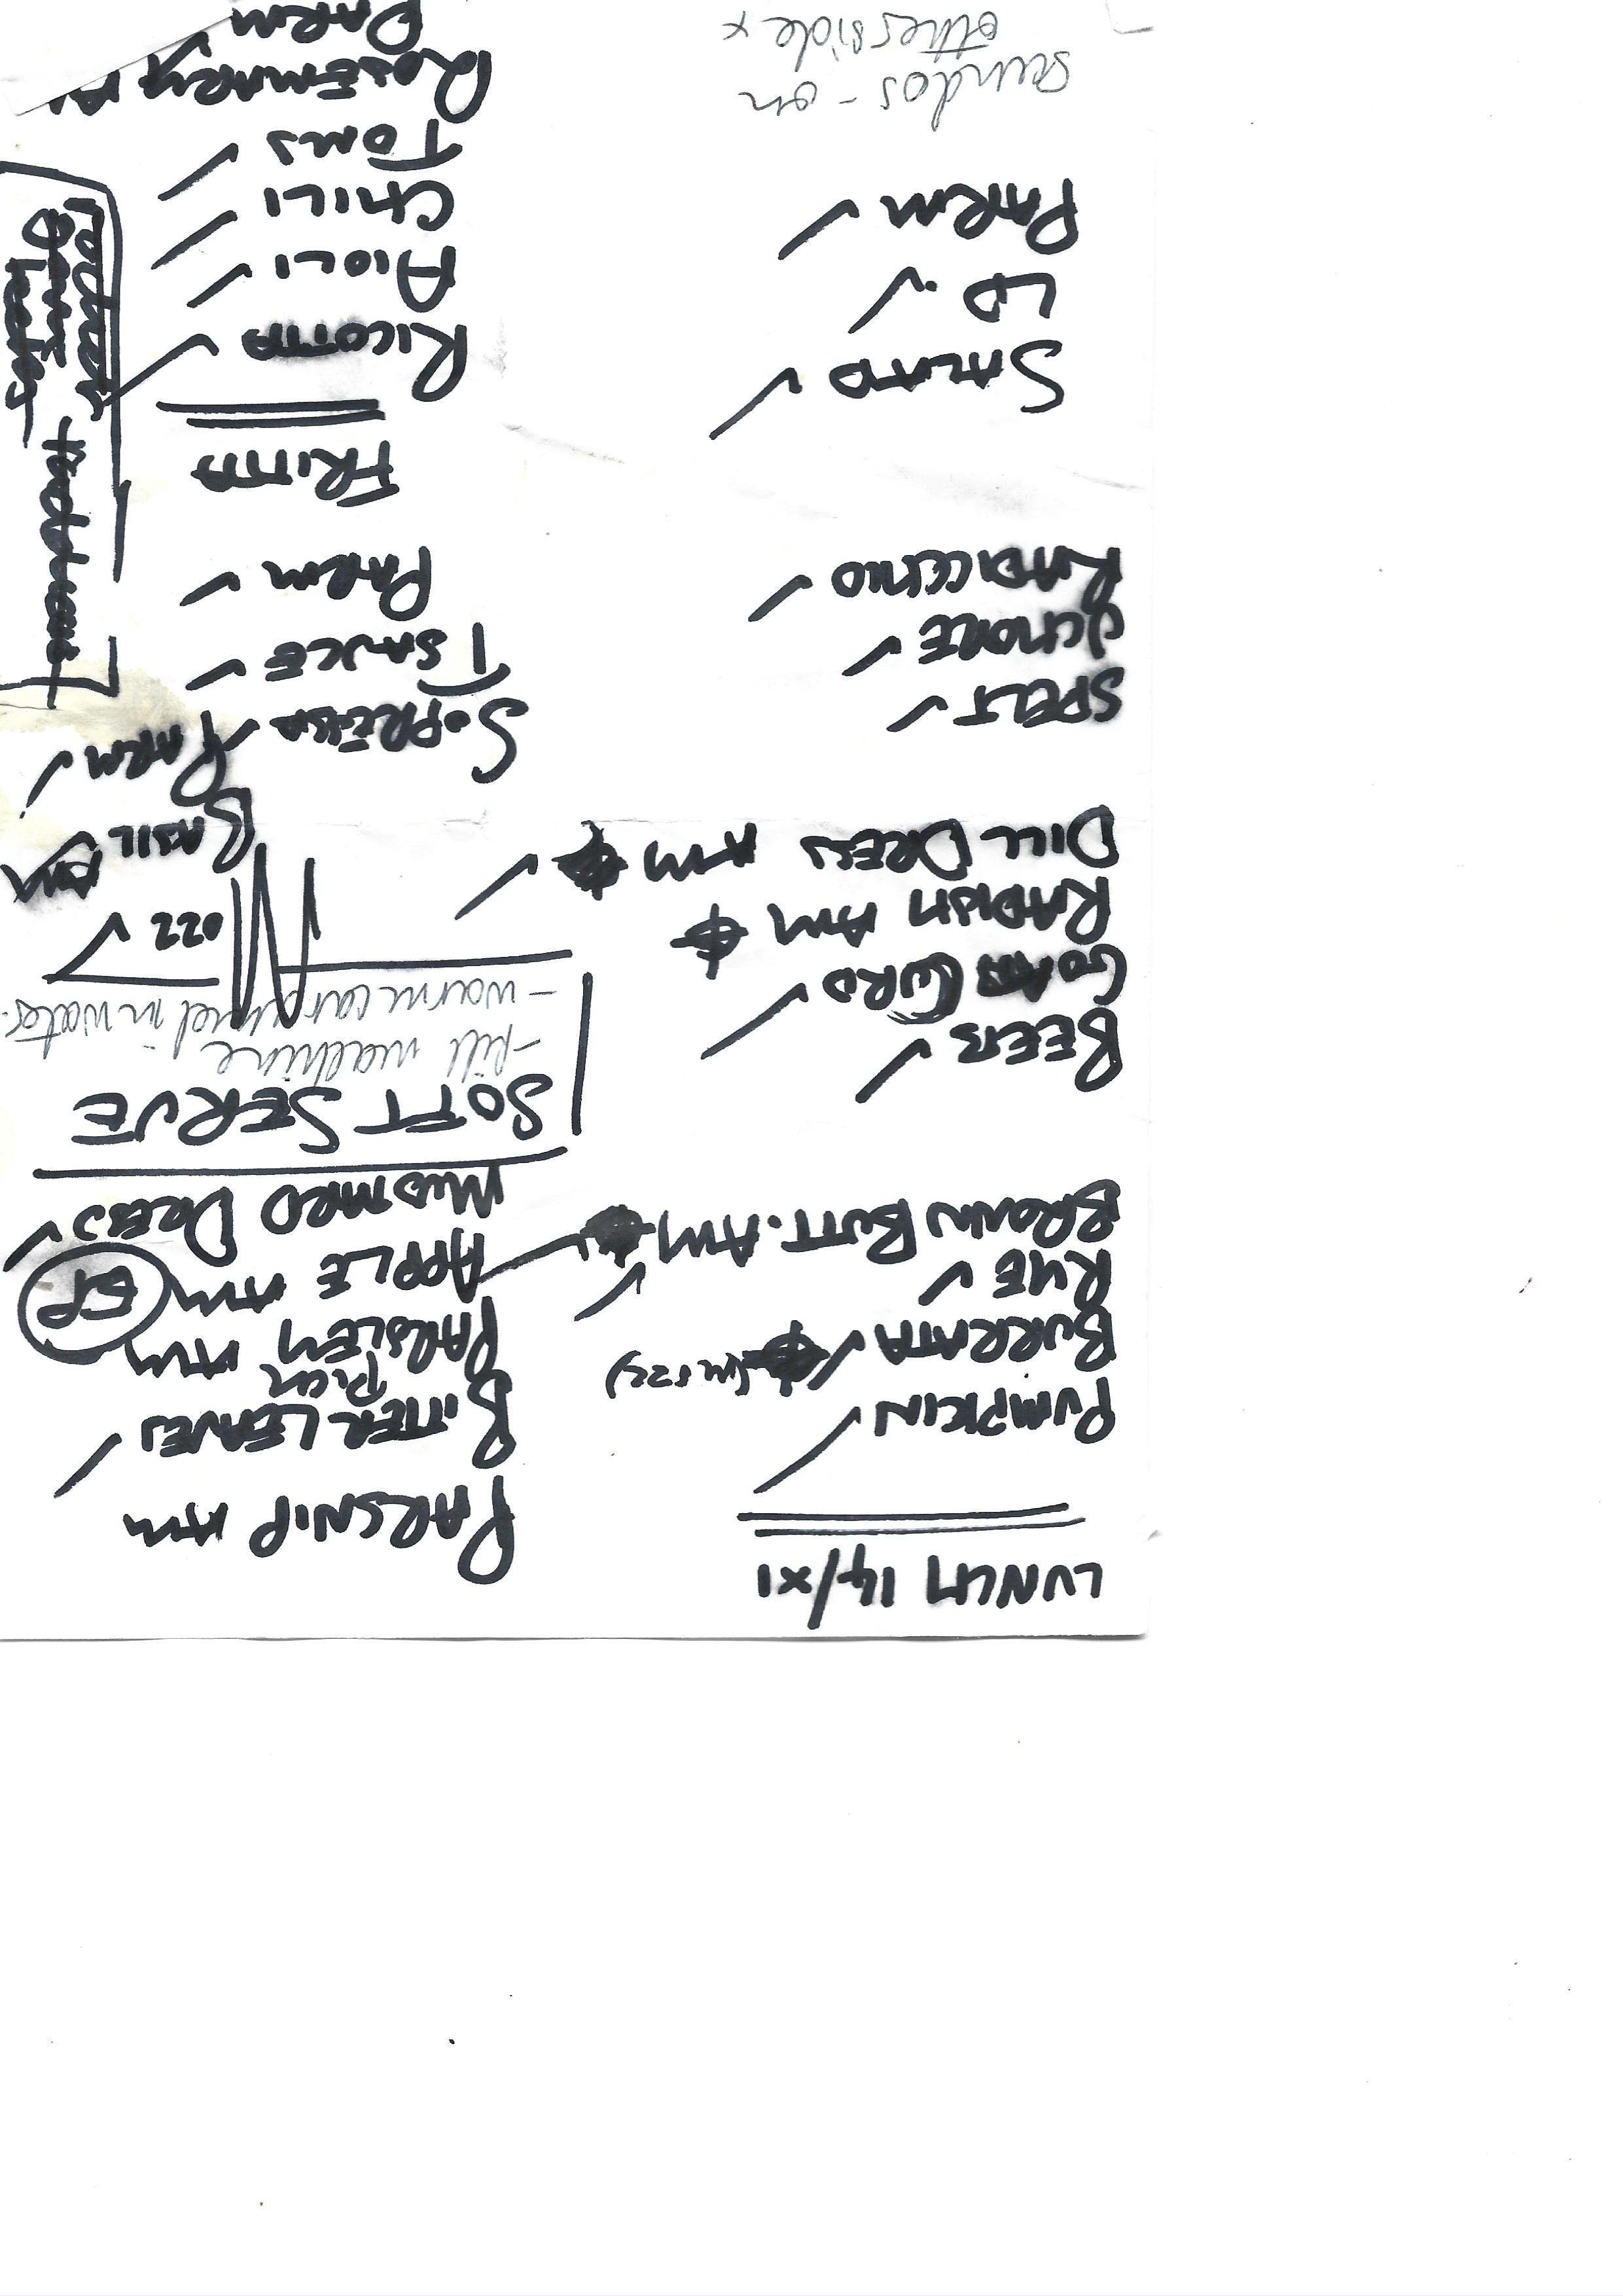 LUNCH 14/XI
PUMPKIN
BURRATA
RYE
BROWN BUTT. AM
BEETS
GOATS CURD
RADISH AM
DILL DRESS AM
SPELT
RADICCHIO
SALATO
LD
PARM
sundos - on
otherside x
PARSNIP AM
BITTER LEAVES
PICK
PARSLEY AM
APPLE AM
MUSTARD DRESS
SOFT SERVE
- fill machine
- warm caramel in water.
BASIL AM
PARM
SOPRESSA
T SAUCE
PARM
FRITTA
RICOTTA
AIOLI
CHILI
TOMS
ROSEMARY
PARM